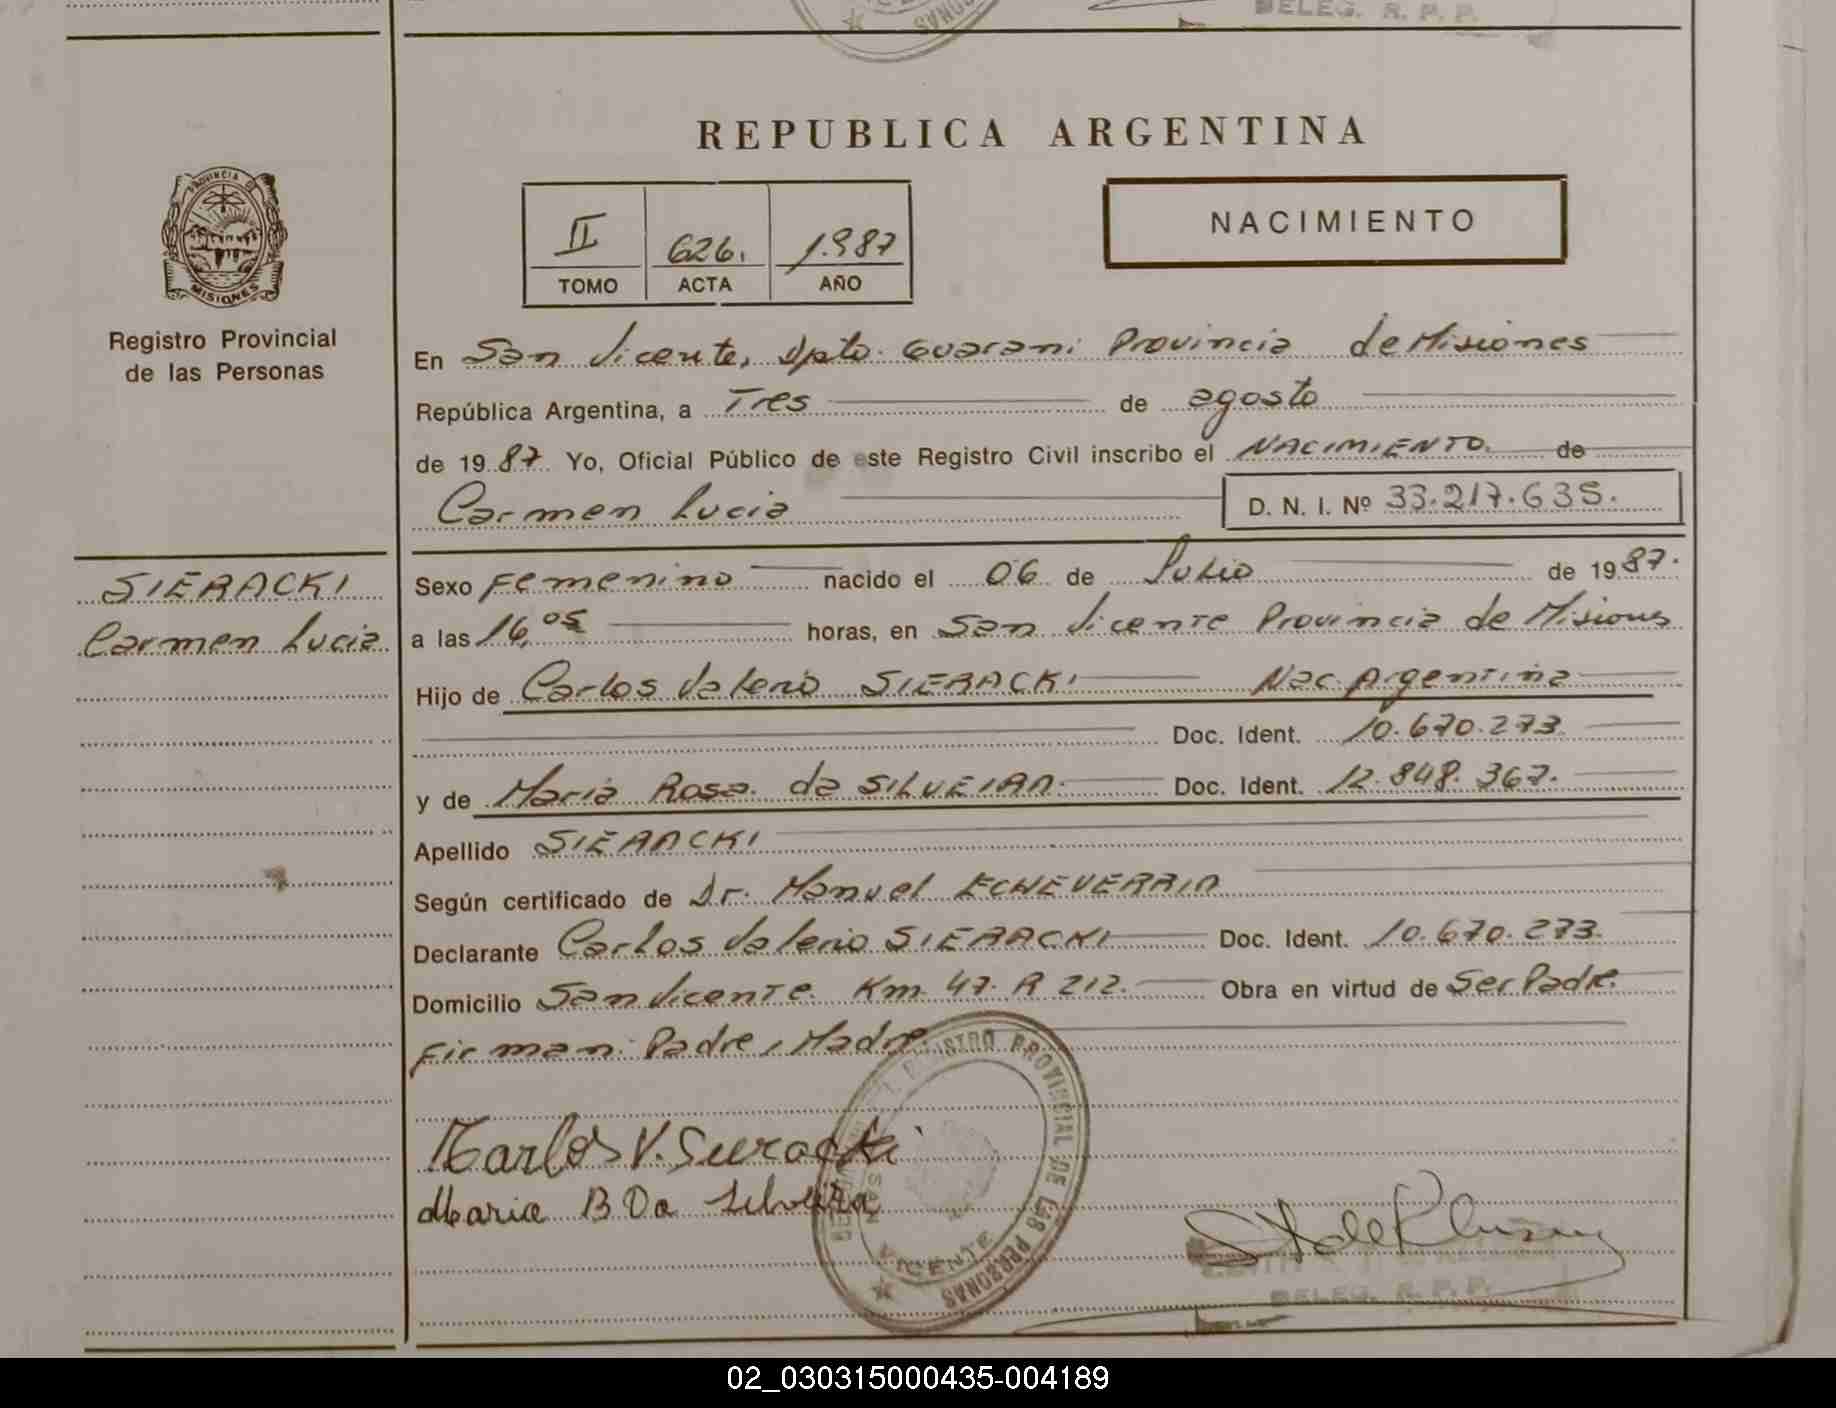 DELEG. R. P. P.
REPUBLICA ARGENTINA
PROVINCIA D
MISIONES
Registro Provincial
de las Personas
II 626. 1.987
TOMO ACTA AÑO
NACIMIENTO
En San Vicente, Dpto. Guarani Provincia de Misiones
República Argentina, a Tres de agosto
de 1987. Yo, Oficial Público de este Registro Civil inscribo el NACIMIENTO. de
Carmen Lucia D. N. I. Nº 33.217.635.
SIERACKI
Carmen Lucia
Sexo Femenino nacido el 06 de Julio de 1987.
a las 16,05 horas, en San Vicente Provincia de Misiones
Hijo de Carlos Valerio SIERACKI Nac. Argentina
Doc. Ident. 10.670.273
y de Maria Rosa da SILVEIRA. Doc. Ident. 12.848.367.
Apellido SIERACKI
Según certificado de Dr. Manuel ECHEVERRIA
Declarante Carlos Valerio SIERACKI Doc. Ident. 10.670.273.
Domicilio San Vicente Km. 47. R 212. Obra en virtud de Ser Padre.
Firman: Padre, Madre
Karlos V. Sieracki
Maria R Da Silveira
REGISTRO PROVINCIAL DE LAS PERSONAS
SAN VICENTE
DELEG. R. P. P.
02_030315000435-004189